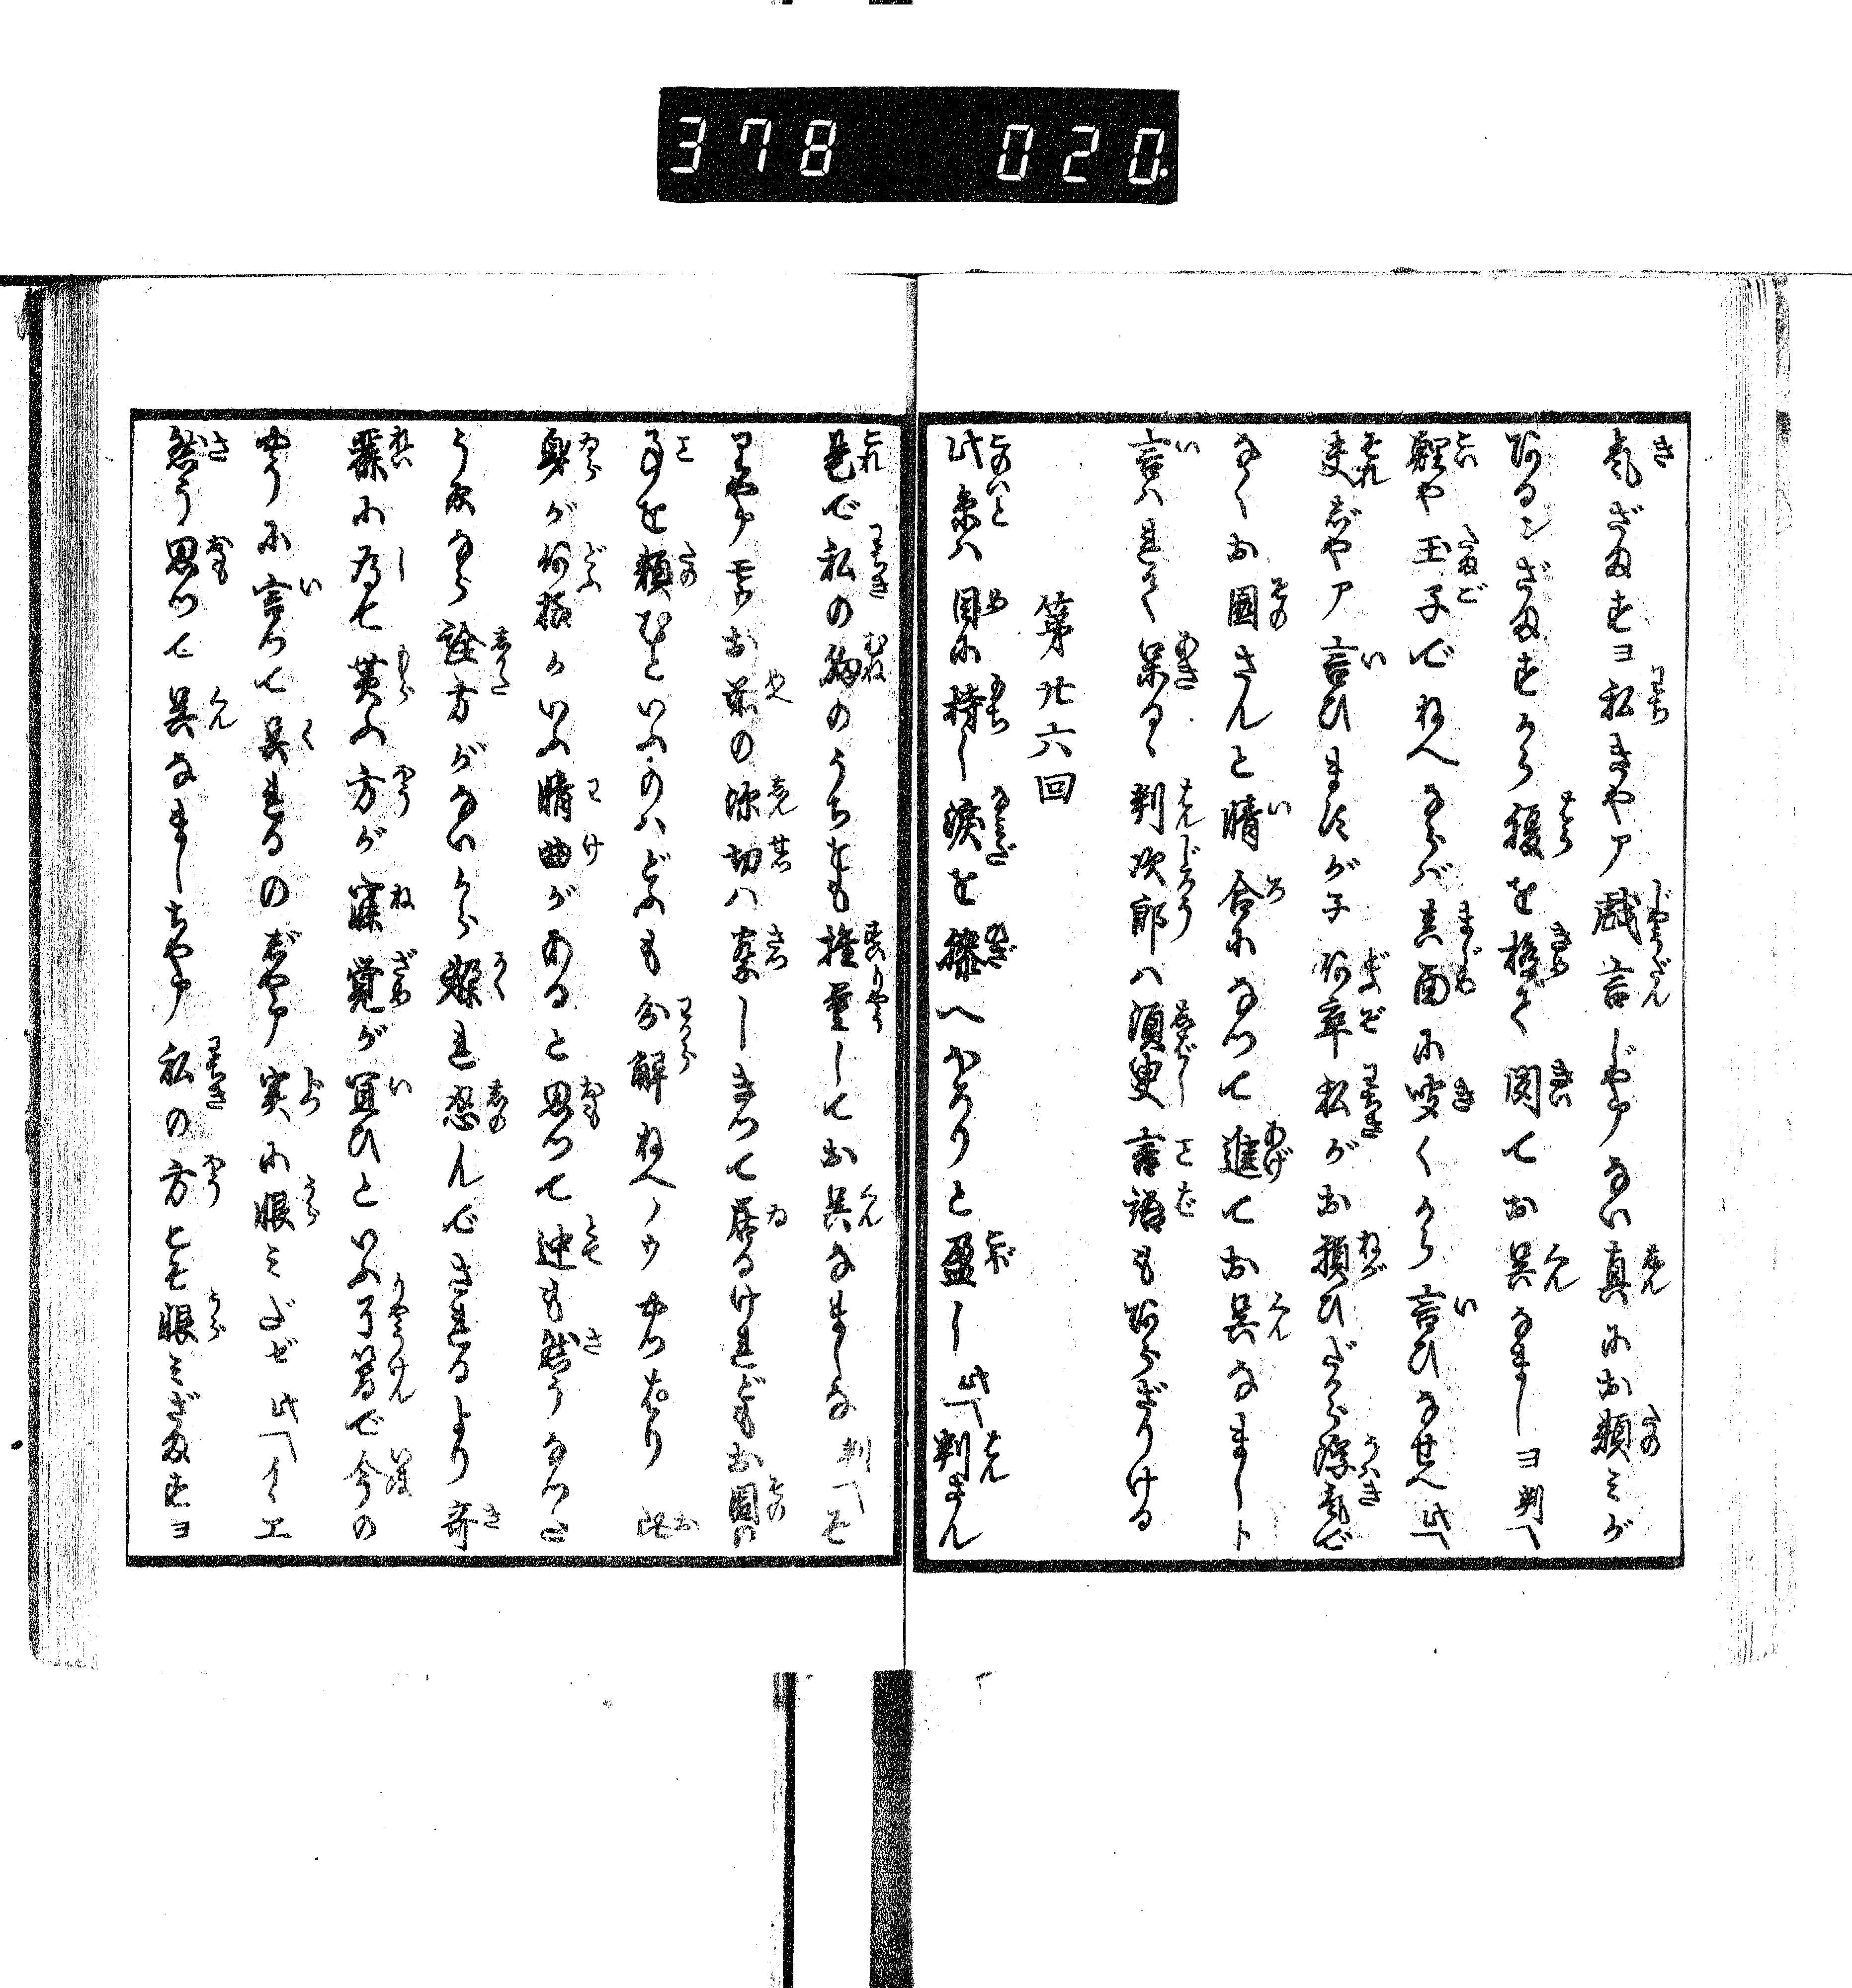 378 020.
気ざますヨ私きやア戯言じやアない真にお頼ミが
阿るンざますから腹を极て聞てお呉なましヨ判「
鯉や玉子でねへならば真面に咬くから言ひなせへ此「
夫じやア言ひますがネ何卒私がお願ひだから浮気で
なくお園さんと情合になつて進てお呉なましト
言はれて呆るゝ判次郎ハ須臾言語も阿らざりける
第廿六回
此糸ハ目に持し涙を膝へホロリと盈し此「判さん
是で私の胸のうちをも推量してお呉なましな判「そ
りやアモウお前の深切ハ察しきつて居るけれどもお園の
事を頼むといふのハどふも分解ねへノウやつぱり此
身が何故かいふ情由があると思つて迚も然うなつた
うへなら詮方がないから赧れ忍んでされるより奇
麗に為て貰ふ方が寐覚が宜ひといふ了簡で今の
やうに言つて呉れるのじやア実に恨ミだぜ此「イヽエ
然う思つて呉なましちやア私の方とも恨ミざますヨ